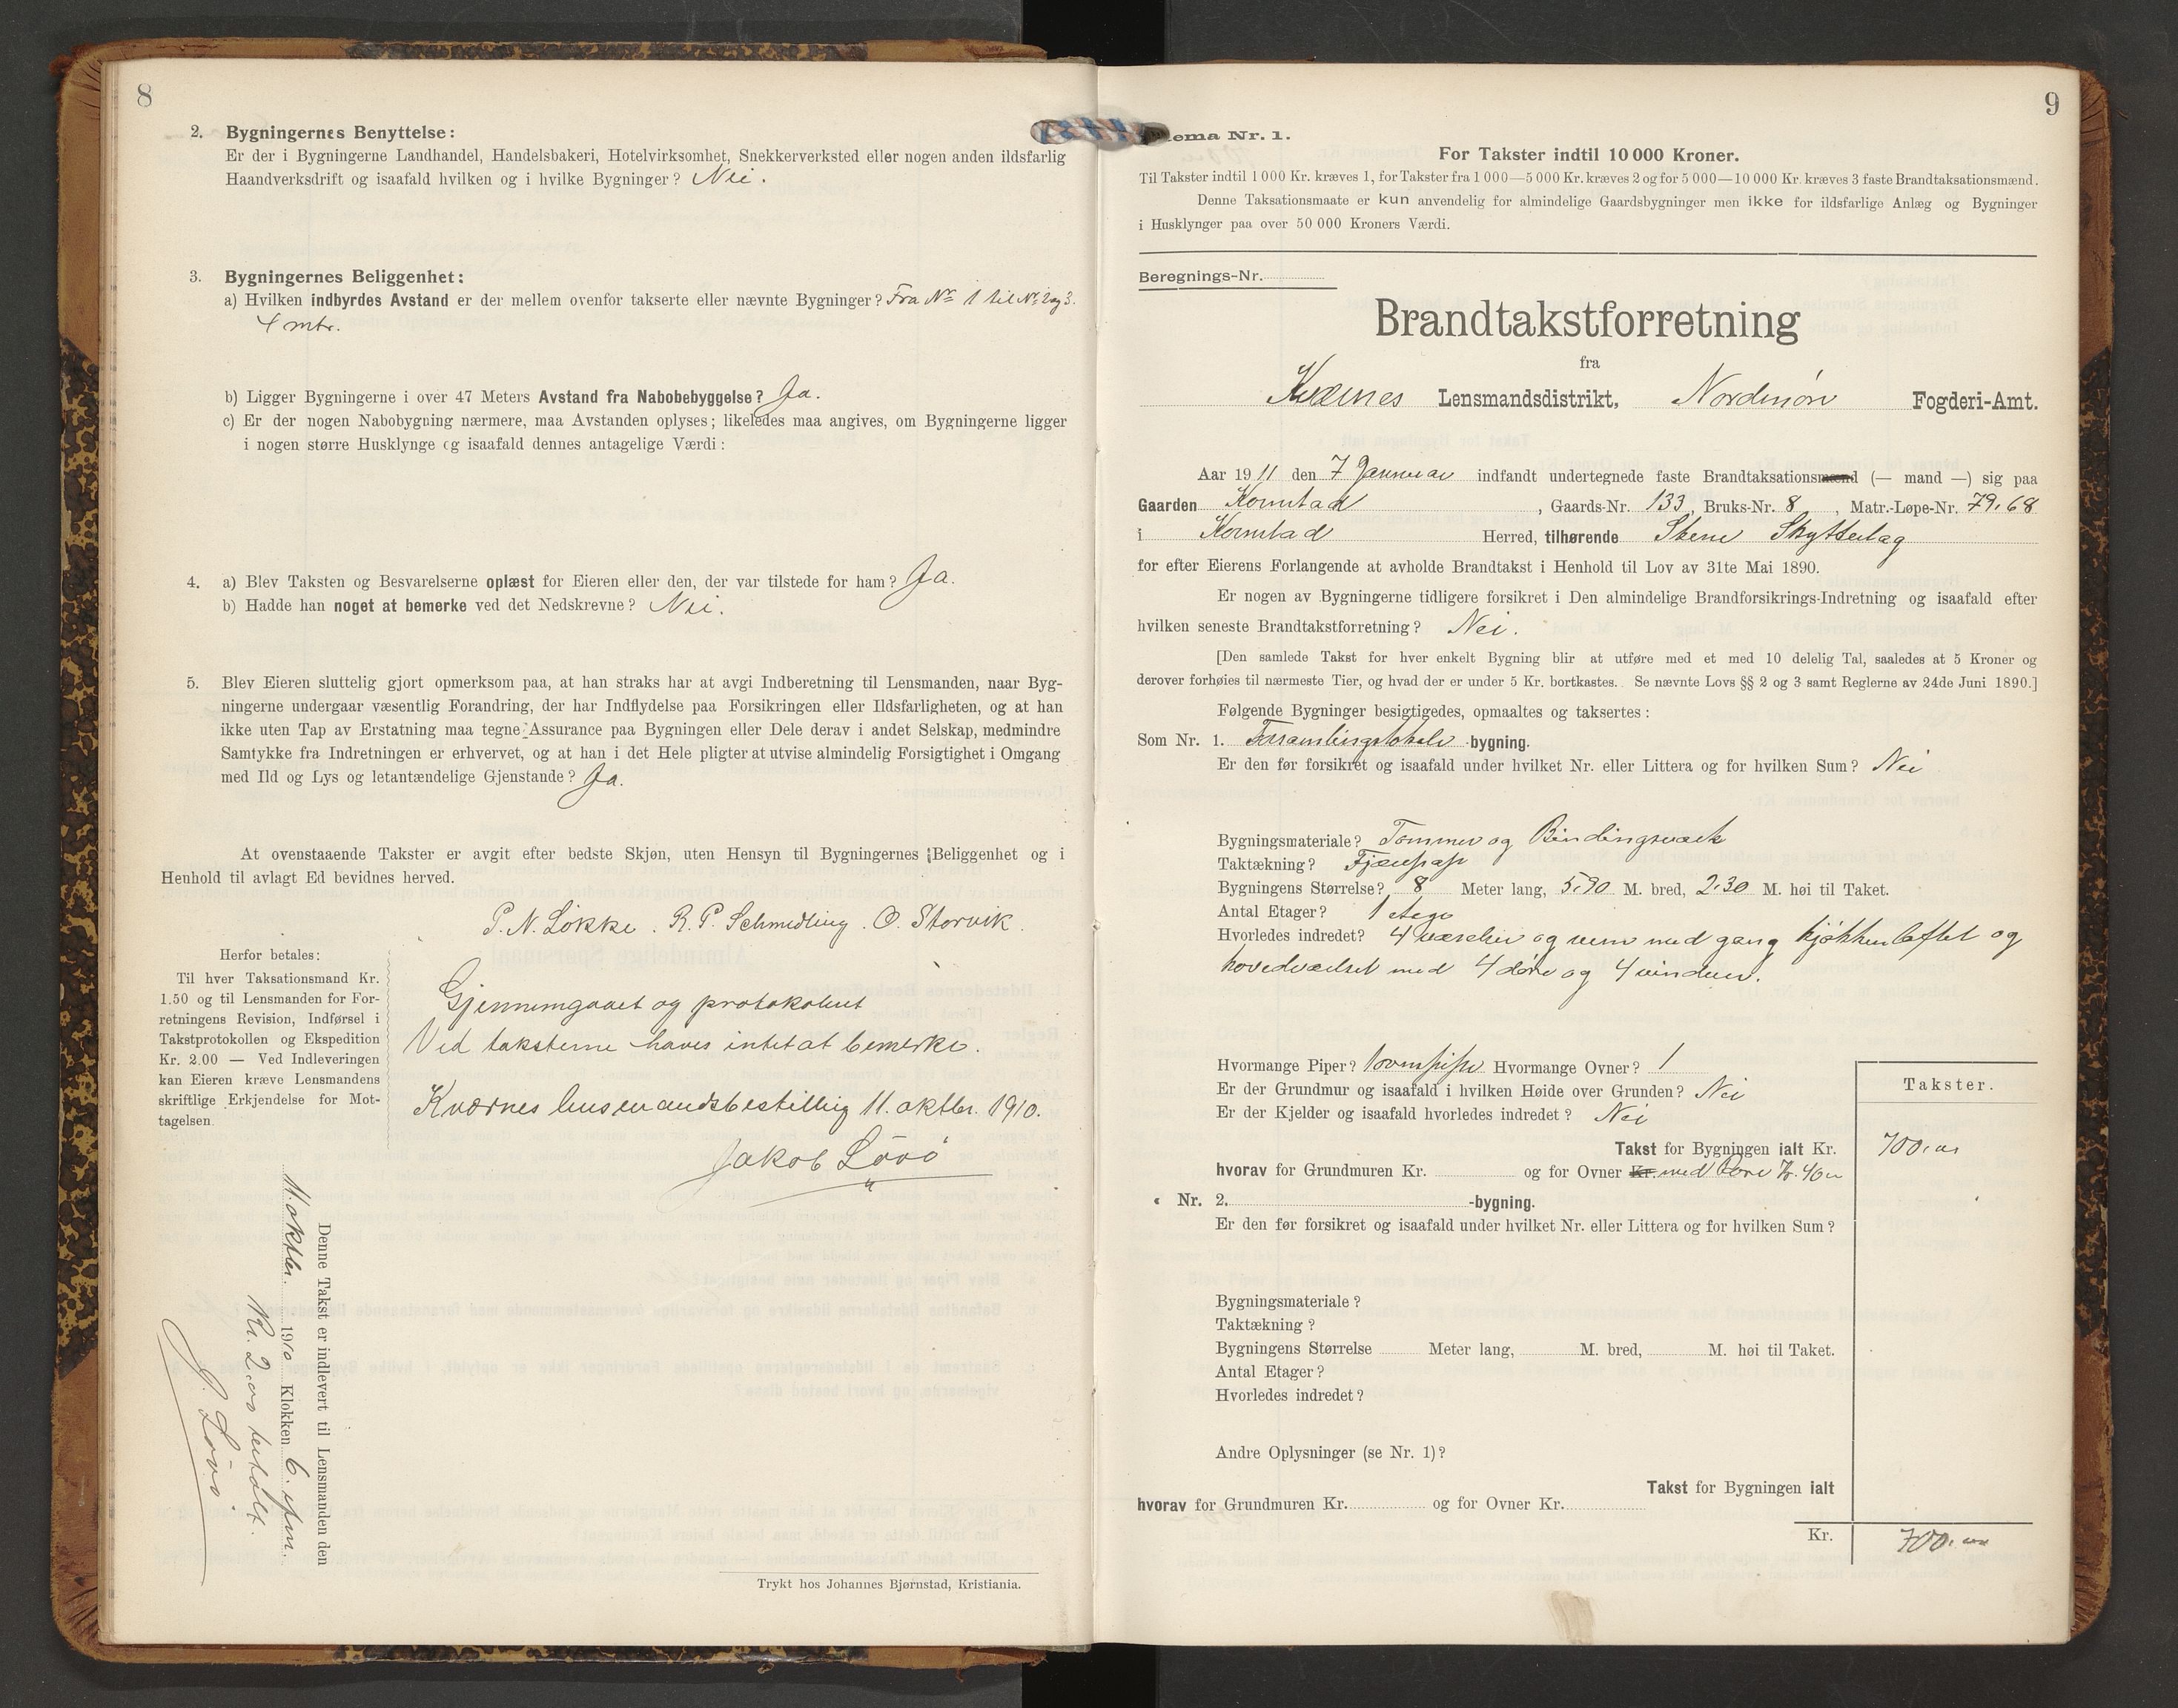 8
2. Bygningernes Benyttelse:
Er der i Bygningerne Landhandel, Handelsbakeri, Hotelvirksomhet, Snekkerverksted eller nogen anden ildsfarlig
Haandverksdrift og isaafald hvilken og i hvilke Bygninger? Nei.
3. Bygningernes Beliggenhet:
a) Hvilken indbyrdes Avstand er der mellem ovenfor takserte eller nævnte Bygninger? Fra Nr 1 til Nr 2 og 3.
4 mtr.
b) Ligger Bygningerne i over 47 Meters Avstand fra Nabobebyggelse? Ja.
c) Er der nogen Nabobygning nærmere, maa Avstanden oplyses; likeledes maa angives, om Bygningerne ligger
i nogen større Husklynge og isaafald dennes antagelige Værdi:
4. a) Blev Taksten og Besvarelserne oplæst for Eieren eller den, der var tilstede for ham? Ja.
b) Hadde han noget at bemerke ved det Nedskrevne? Nei.
5. Blev Eieren sluttelig gjort opmerksom paa, at han straks har at avgi Indberetning til Lensmanden, naar Byg-
ningerne undergaar væsentlig Forandring, der har Indflydelse paa Forsikringen eller Ildsfarligheten, og at han
ikke uten Tap av Erstatning maa tegne Assurance paa Bygningen eller Dele derav i andet Selskap, medmindre
Samtykke fra Indretningen er erhvervet, og at han i det Hele pligter at utvise almindelig Forsigtighet i Omgang
med Ild og Lys og letantændelige Gjenstande? Ja.
At ovenstaaende Takster er avgit efter bedste Skjøn, uten Hensyn til Bygningernes Beliggenhet og i
Henhold til avlagt Ed bevidnes herved.
P. N. Løkke. R. P. Schmidling. O. Storvik.
Herfor betales:
Til hver Taksationsmand Kr.
1.50 og til Lensmanden for For-
retningens Revision, Indførsel i
Takstprotokollen og Ekspedition
Kr. 2.00 — Ved Indleveringen
kan Eieren kræve Lensmandens
skriftlige Erkjendelse for Mot-
tagelsen.
Gjennemgaaet og protokoleret
Ved taksterne haves intet at bemerke.
Kværnes lensmandsbestilling 11. oktbr. 1910.
Jakob Løvø
Denne Takst er indlevert til Lensmanden den
11. oktbr. 1910 Klokken 6. epm.
Kr. 2.00 betalt.
J. Løvø
Trykt hos Johannes Bjørnstad, Kristiania.
9
ema Nr. 1.
For Takster indtil 10 000 Kroner.
Til Takster indtil 1 000 Kr. kræves 1, for Takster fra 1 000—5 000 Kr. kræves 2 og for 5 000—10 000 Kr. kræves 3 faste Brandtaksationsmænd.
Denne Taksationsmaate er kun anvendelig for almindelige Gaardsbygninger men ikke for ildsfarlige Anlæg og Bygninger
i Husklynger paa over 50 000 Kroners Værdi.
Beregnings-Nr.
Brandtakstforretning
fra
Kværnes Lensmandsdistrikt, Nordmøre Fogderi-Amt.
Aar 1911 den 7 Januar indfandt undertegnede faste Brandtaksationsmænd (— mand —) sig paa
Gaarden Kornstad, Gaards-Nr. 133, Bruks-Nr. 8, Matr.-Løpe-Nr. 79,68
i Kornstad Herred, tilhørende Stene Skytterlag
for efter Eierens Forlangende at avholde Brandtakst i Henhold til Lov av 31te Mai 1890.
Er nogen av Bygningerne tidligere forsikret i Den almindelige Brandforsikrings-Indretning og isaafald efter
hvilken seneste Brandtakstforretning? Nei.
[Den samlede Takst for hver enkelt Bygning blir at utføre med et med 10 delelig Tal, saaledes at 5 Kroner og
derover forhøies til nærmeste Tier, og hvad der er under 5 Kr. bortkastes. Se nævnte Lovs §§ 2 og 3 samt Reglerne av 24de Juni 1890.]
Følgende Bygninger besigtigedes, opmaaltes og taksertes:
Som Nr. 1. Forsamlingslokale -bygning.
Er den før forsikret og isaafald under hvilket Nr. eller Littera og for hvilken Sum? Nei
Bygningsmateriale? Tømmer og Bindingsværk
Taktækning? Tjærepap
Bygningens Størrelse? 8 Meter lang, 5,90 M. bred, 2,30 M. høi til Taket.
Antal Etager? 1 etage
Hvorledes indredet? 4 værelser og rum med gang kjøkken loftet og
hovedværelset med 4 døre og 4 vinduer.
Hvormange Piper? 1 ovnspipe Hvormange Ovner? 1
Er der Grundmur og isaafald i hvilken Høide over Grunden? Nei
Er der Kjelder og isaafald hvorledes indredet? Nei
Takster.
Takst for Bygningen ialt Kr. 700,00
hvorav for Grundmuren Kr. og for Ovner Kr. med Kr. 40
" Nr. 2. -bygning.
Er den før forsikret og isaafald under hvilket Nr. eller Littera og for hvilken Sum?
Bygningsmateriale?
Taktækning?
Bygningens Størrelse Meter lang, M. bred, M. høi til Taket.
Antal Etager?
Hvorledes indredet?
Andre Oplysninger (se Nr. 1)?
Takst for Bygningen ialt
hvorav for Grundmuren Kr. og for Ovner Kr.
Kr. 700,00